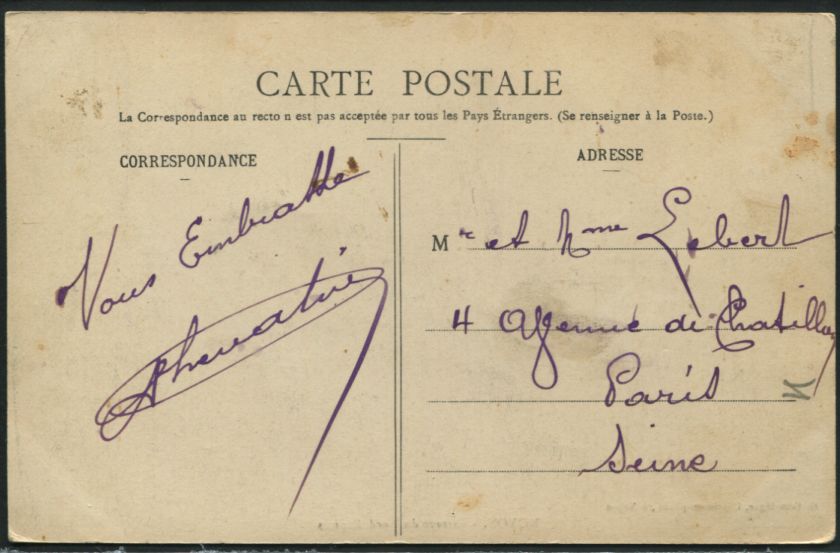 CARTE POSTALE
La Correspondance au recto n est pas acceptée par tous les Pays Étrangers. (Se renseigner à la Poste.)
CORRESPONDANCE
Vous Embrasse
ADRESSE
Mr et Mme Lebert
4 Avenue de Chatillon
Paris
Seine